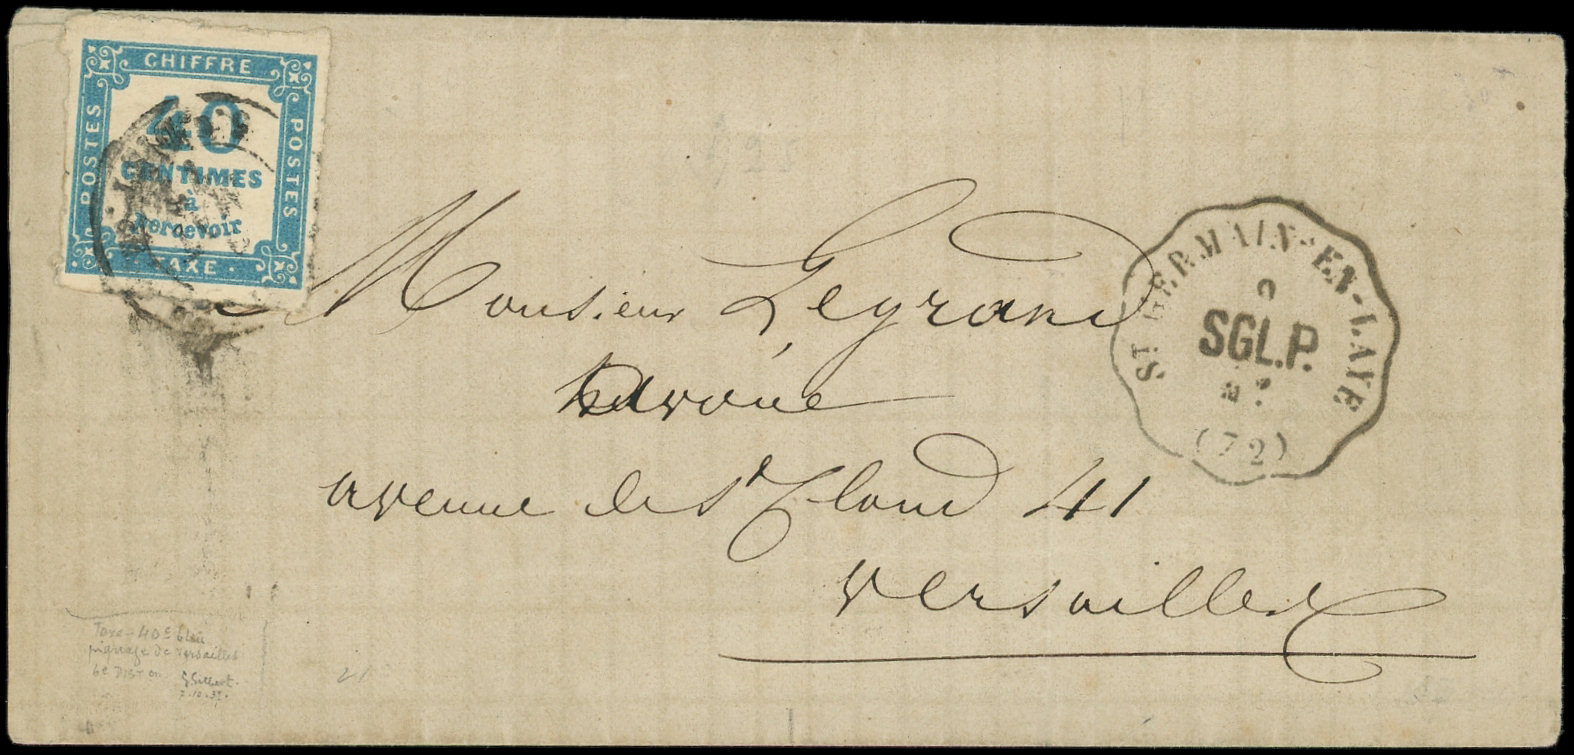 CHIFFRE
POSTES
POSTES
40
CENTIMES
à
percevoir
TAXE
Monsieur Legrand
avoué
avenue de St Cloud 41
Versailles
ST GERMAIN-EN-LAYE
SGL.P.
(72)
Taxe - 40c bleu
piquage de Versailles